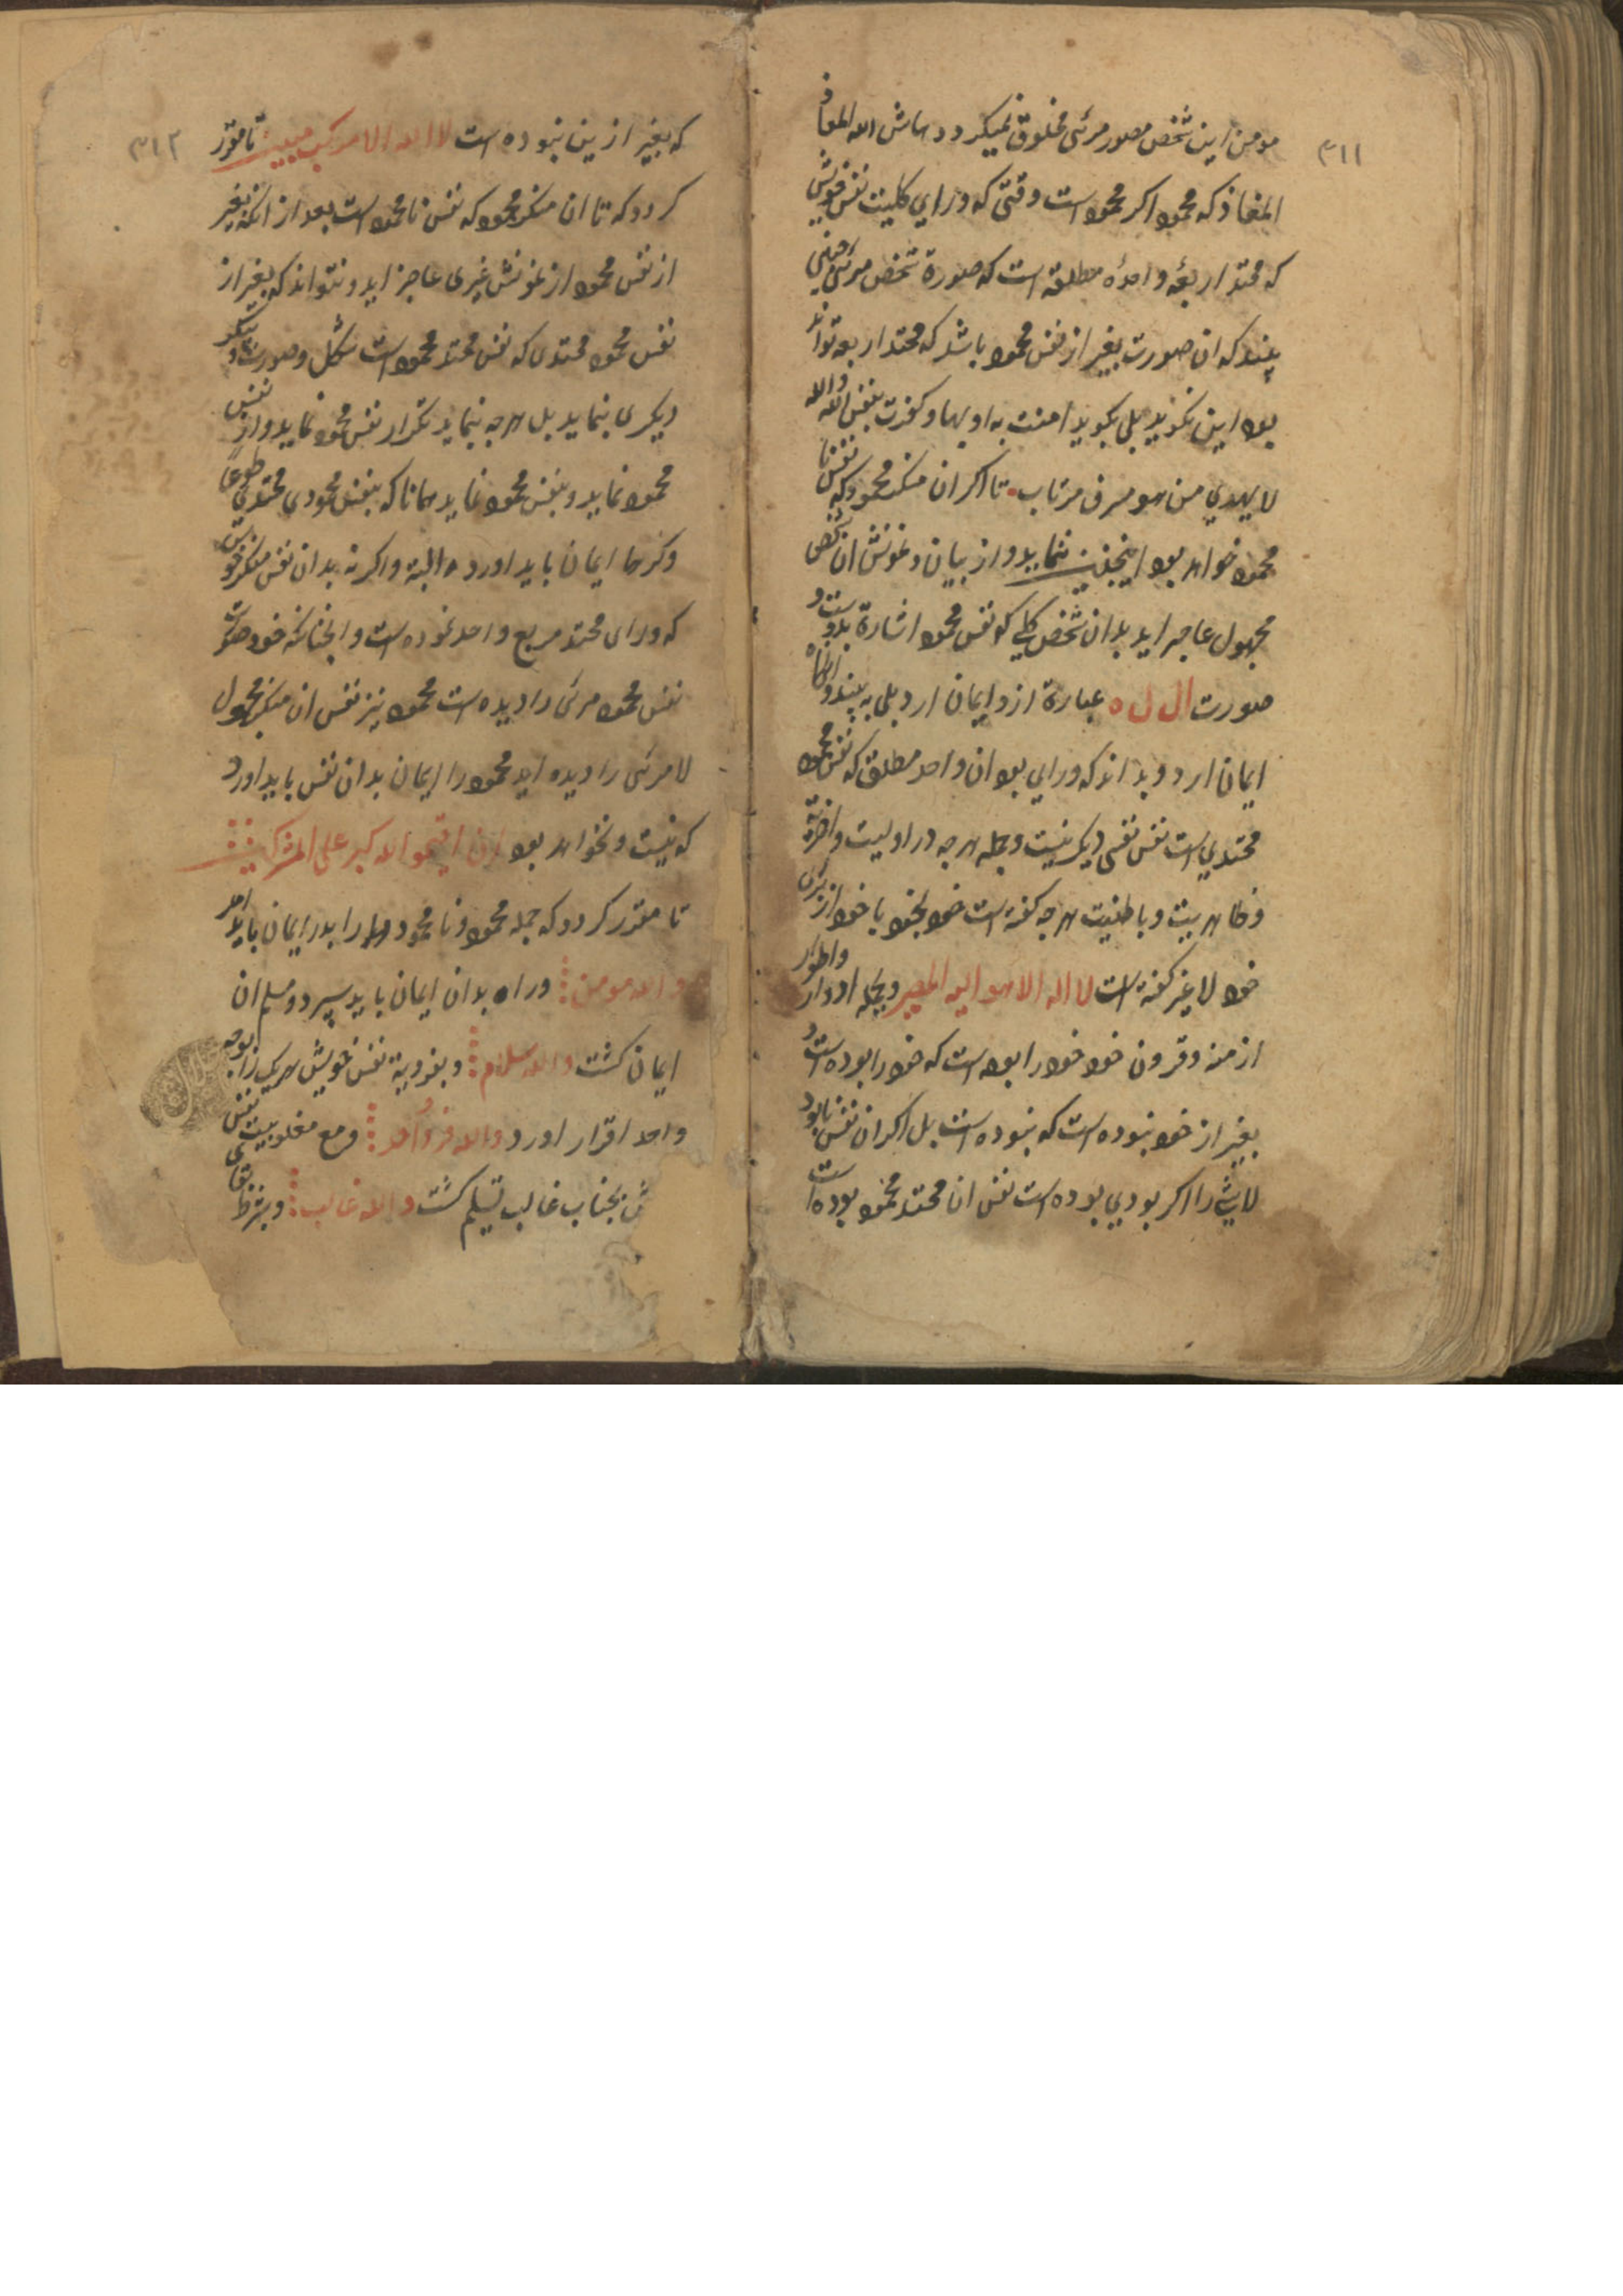 ٣١١
مومن این شخص مصور مرئی مخلوق نمیکردد حاش الله المعاذ
المعاذ که محمود اکر محمود است وقتی که ورای کلیت نفس خویشی
که محتد اربعهٔ واحدهٔ مطلقه است که صورة شخص مرئی چنینی
بیند که ان صورت بغیر از نفس محمود باشد که محتد اربعه تواند
بود این نکوید بلی بکوید امنت به اوبها وکفرت بنفس الله والله
لا یهدی من هو مسرف مرتاب تا اکر ان منکر محمود که نفس نا
محمود خواهد بود اینچنین ننماید واز بیان ونمونش ان شخص
مجهول عاجز اید بدان شخص کلی که نفس محمود اشارة بدوست و
صورت ال ل ه عبارة ازو ایمان ارد بلی به بیند وانکاه
ایمان ارد وبداند که ورای بود ان واحد مطلق که نفس محمود
محتدی است نفس نفسی دیکر نیست وبجمله هرجه در اولیت واخریة
وظاهریت وباطنیت هرجه کفته است خود بخود با خود از برای
خود لا غیر کفته است لا اله الا هو الیه المصیر وبجمله ادوار واطوار
ازمنه وقرون خود خود را بوده است که خود را بوده است و
بغیر از خود نبوده است که نبوده است بل اکر ان نفس نابود
لاشیء را اکر بودی بوده است نفس انا محتد محمود بوده است
٣١٢
که بغیر ازین نبوده است لا اله الا مرکب مبین تا مقرر
کردد که تا ان منکر محمود که نفس نامحمود است بعد از انکه بغیر
از نفس محمود از نمونش غیری عاجز اید ونتواند که بغیر از
نفس محمود محتدی که نفس محتد محمود است شکل وصورت و پیکر
دیکری بنماید بل هرجه بنماید تکرار نفس محمود نماید واز نفس
محمود نماید وبنفس محمود نماید همانا که بنفس محمودی محتدی طوعا
وکرها ایمان باید اورد البته واکر نه بدان نفس منکر خویش
که ورای محتد مربع واحد نموده است وانجنانکه خود صورت
نفس محمود مرئی را دیده است محمود نیز نفس ان منکر مجهول
لا مرئی را دیده اید محمود را ایمان بدان نفس باید اورد
که نیست ونخواهد بود ان اقیموا الله کبر علی المشرکین
تا مقرر کردد که جمله محمود ونامحمود را بدر ایمان باید امد
والله مومن وراه بدان ایمان باید سپرد ومسلم ان
ایمان کشت والله سلام وبفردیة نفس خویش هر یک را بوجه
واحد اقرار اورد والله فرد احد ومع مغلوبیت نفس
بجناب غالب تسلیم کشت والله غالب وبشرط بقای